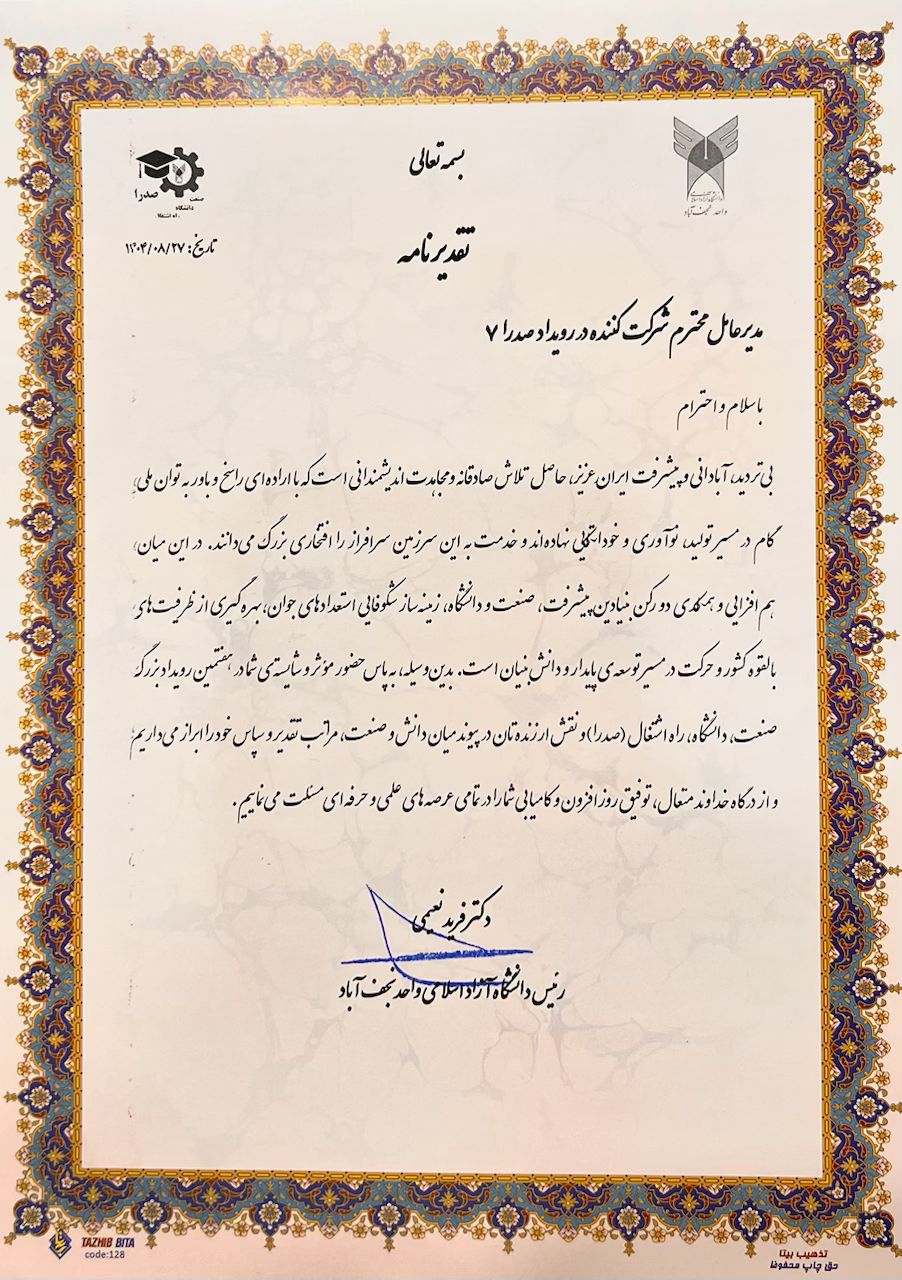 بسمه تعالی
صدرا
صنعت
دانشگاه
راه اشتغال
دانشگاه آزاد اسلامی
واحد نجف آباد
تاریخ: ۱۴۰۴/۰۸/۲۷
تقدیرنامه
مدیرعامل محترم شرکت کننده در رویداد صدرا ۷
با سلام و احترام
بی تردید، آبادانی و پیشرفت ایران عزیز، حاصل تلاش صادقانه و مجاهدت اندیشمندانی است که با اراده ای راسخ و باور به توان ملی،
گام در مسیر تولید، نوآوری و خوداتکایی نهاده اند و خدمت به این سرزمین سرافراز را افتخاری بزرگ می دانند. در این میان،
هم افزایی و همکدی دو رکن بنیادین پیشرفت، صنعت و دانشگاه، زمینه ساز شکوفایی استعدادهای جوان، بهره گیری از ظرفیت های
بالقوه کشور و حرکت در مسیر توسعه ی پایدار و دانش بنیان است. بدین وسیله، به پاس حضور مؤثر و شایسته ی شما در هفتمین رویداد بزرگ
صنعت، دانشگاه، راه اشتغال (صدرا) و نقش ارزنده تان در پیوند میان دانش و صنعت، مراتب تقدیر و سپاس خود را ابراز می داریم
و از درگاه خداوند متعال، توفیق روزافزون و کامیابی شما را در تمامی عرصه های علمی و حرفه ای مسئلت می نماییم.
دکتر فرید نعیمی
رئیس دانشگاه آزاد اسلامی واحد نجف آباد
TAZHIB BITA
code:128
تذهیب بیتا
حق چاپ محفوظ